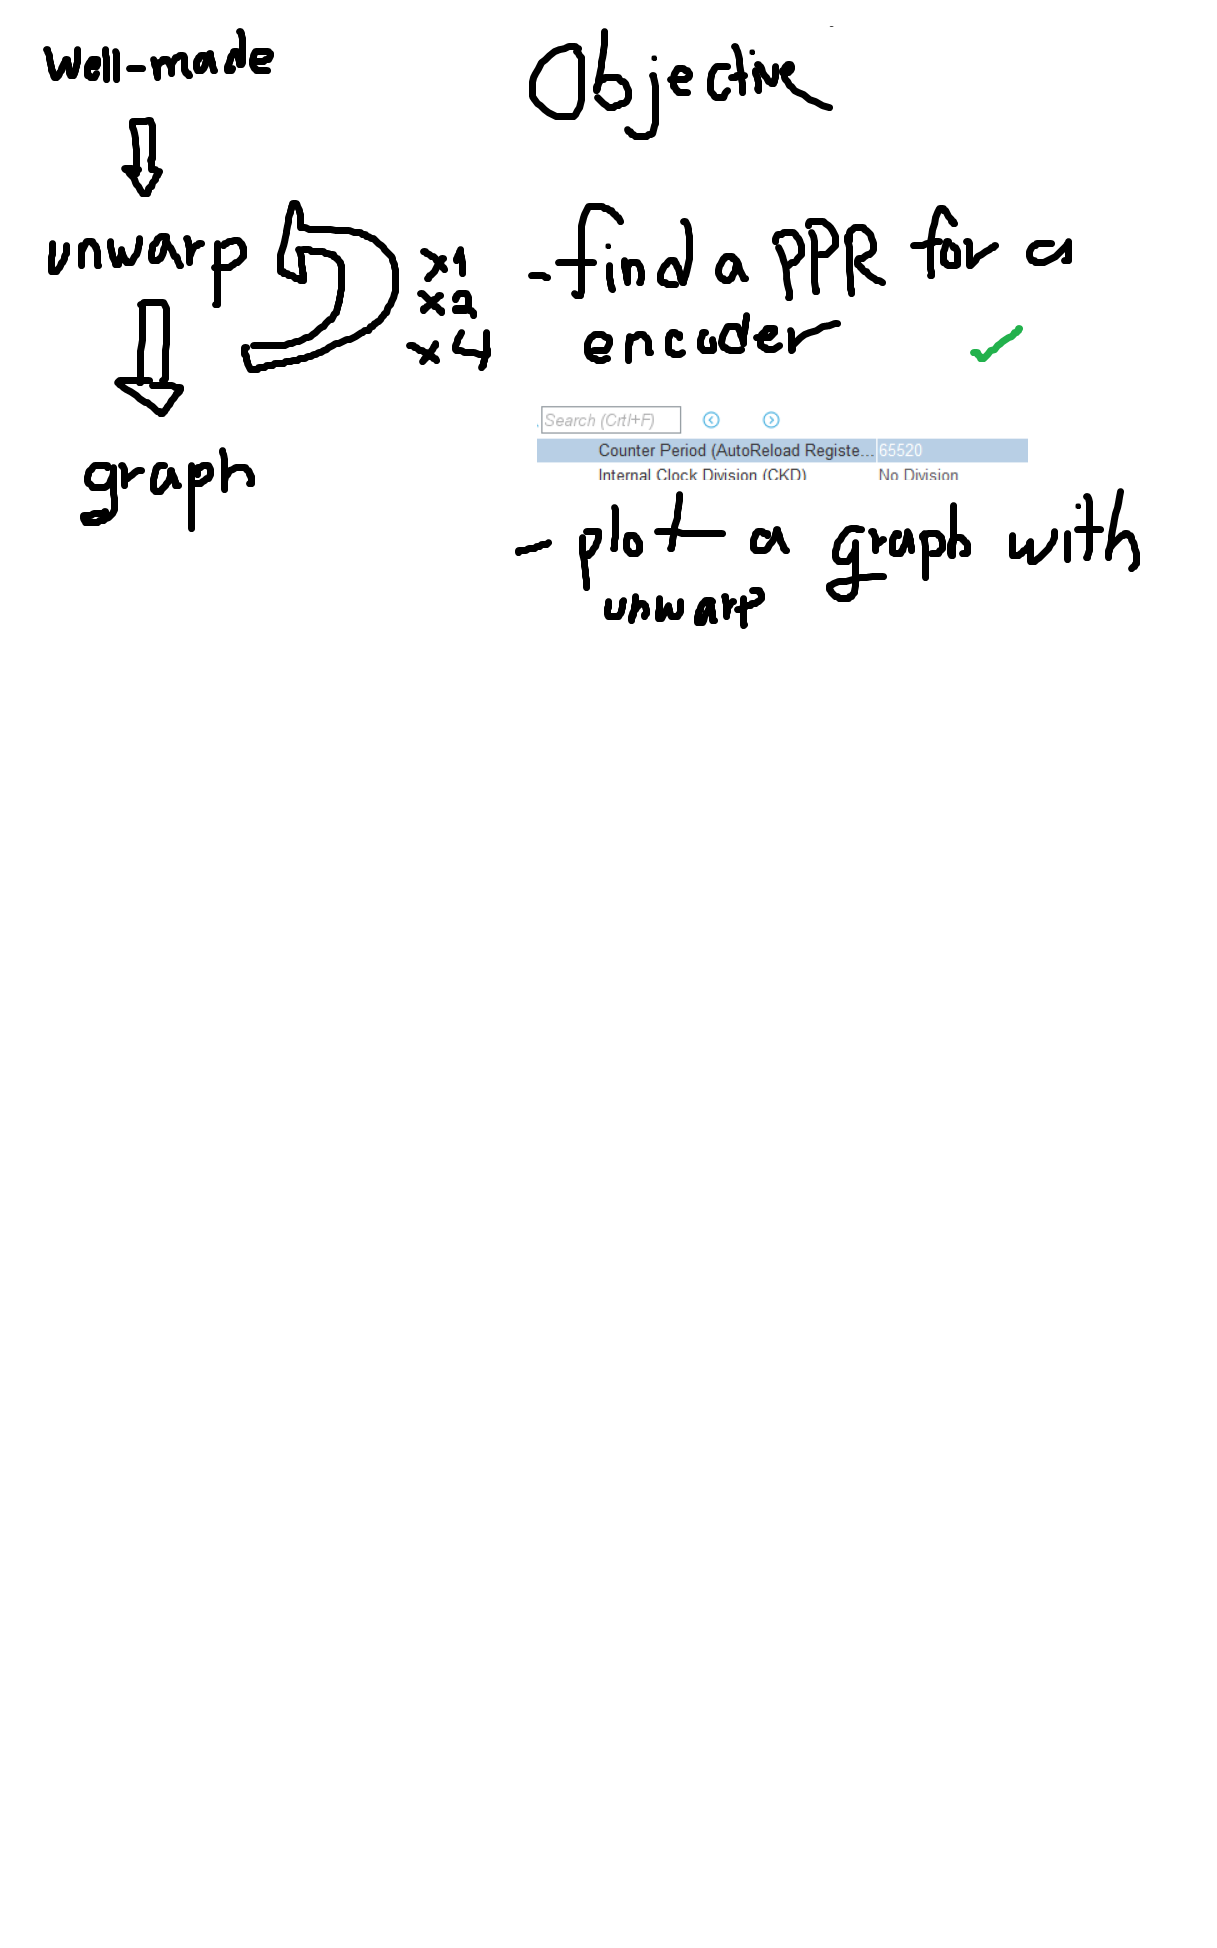 Well-made
unwarp
x1
x2
x4
graph
Objective
-find a PPR for a
encoder
Search (Crtl+F)
Counter Period (AutoReload Registe... 65520
Internal Clock Division (CKD) No Division
- plot a graph with
unwarp